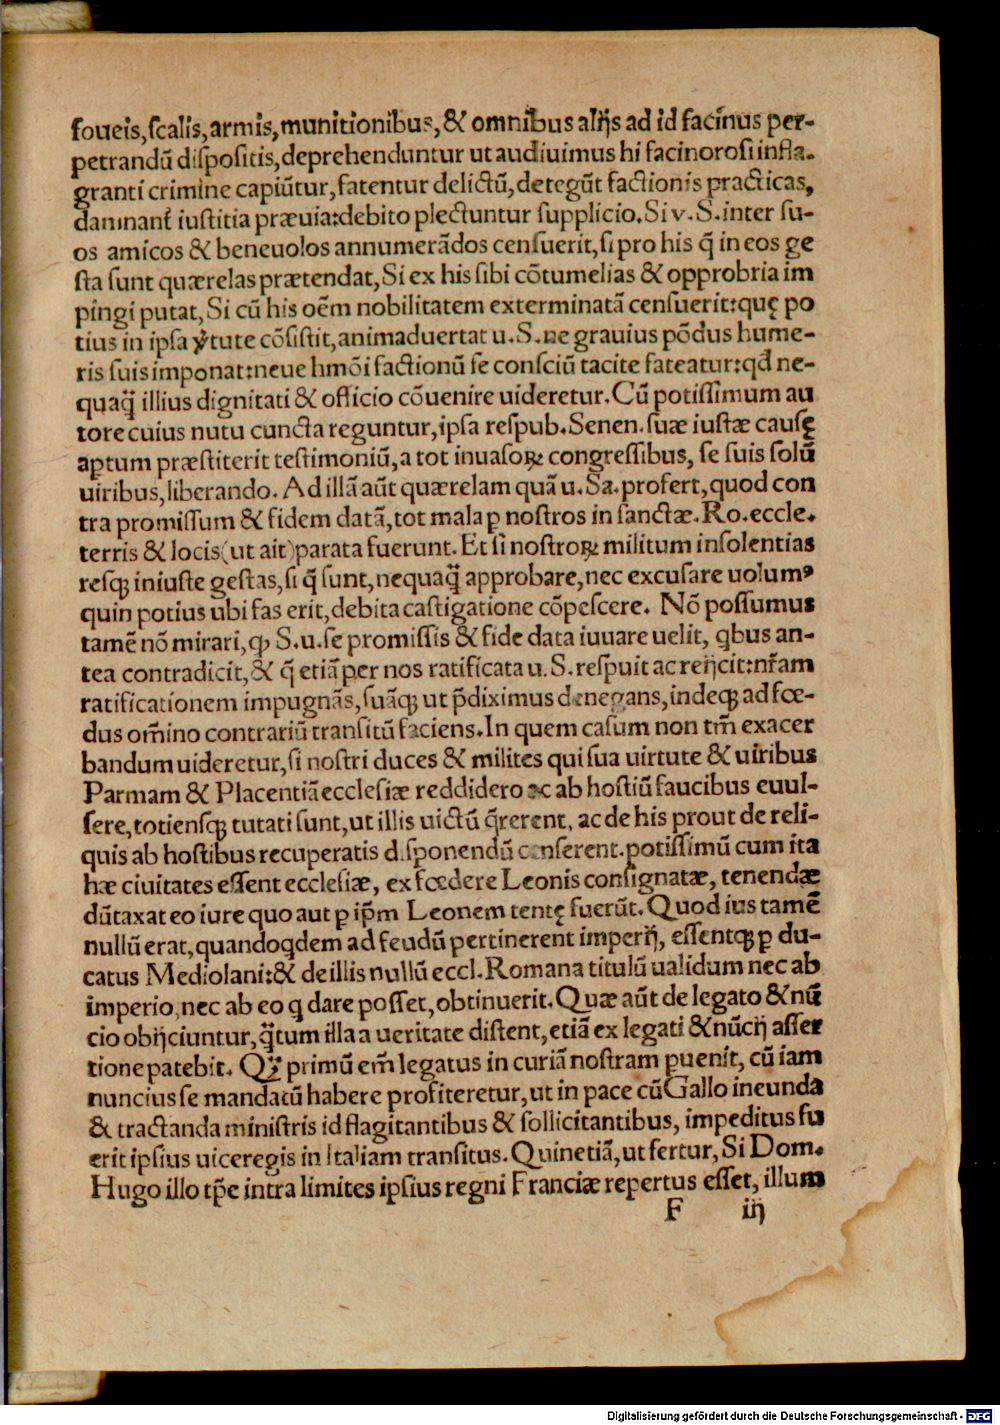 foueis,ſcalis,armis,munitionibusꝰ,& omnibus alijs ad id facinus per-
petrandū diſpoſitis,deprehenduntur ut audiuimus hi facinoroſi infla-
granti crimine capiūtur,fatentur delictū,detegūt factionis practicas,
damnant̃ iuſtitia præuia:debito plectuntur ſupplicio.Si v.S.inter ſu-
os amicos & beneuolos annumerādos cenſuerit,ſi pro his q̄ in eos ge
ſta ſunt quærelas prætendat,Si ex his ſibi cōtumelias & opprobria im
pingi putat,Si cū his oēm nobilitatem exterminatā cenſuerit:quę po
tius in ipſa v̓tute cōſiſtit,animaduertat u.S.ne grauius pōdus hume-
ris ſuis imponat:neue hmōi factionū ſe conſciū tacite fateatur:qd̄ ne-
quaq̄ illius dignitati & officio cōuenire uideretur.Cū potiſſimum au
tore cuius nutu cuncta reguntur,ipſa reſpub.Senen.ſuæ iuſtæ cauſę
aptum præſtiterit teſtimoniū,a tot inuaſoꝝ congreſſibus, ſe ſuis ſolū
uiribus,liberando. Ad illā aūt quærelam quā u.Sa.profert,quod con
tra promiſſum & fidem datā,tot mala p noſtros in ſanctæ.Ro.eccle.
terris & locis(ut ait)parata fuerunt.Et ſi noſtroꝝ militum inſolentias
reſqꝫ iniuſte geſtas,ſi q̄ ſunt,nequaq̄ approbare,nec excuſare uolumꝰ
quin potius ubi fas erit,debita caſtigatione cōpeſcere. Nō poſſumus
tamē nō mirari,ꝙ S.u.ſe promiſſis & fide data iuuare uelit, qbus an-
tea contradicit,& q̄ etiā per nos ratificata u.S.reſpuit ac reijcit:nr̄am
ratificationem impugnās,ſuāqꝫ ut p̄diximus denegans,indeqꝫ ad fœ-
dus om̄ino contrariū tranſitū faciens.In quem caſum non tm̄ exacer
bandum uideretur,ſi noſtri duces & milites qui ſua uirtute & uiribus
Parmam & Placentiā eccleſiæ reddidero ac ab hoſtiū faucibus euul-
ſere,totienſqꝫ tutati ſunt,ut illis uictū q̄rerent, ac de his prout de reli-
quis ab hoſtibus recuperatis diſponendū cenſerent.potiſſimū cum ita
hæ ciuitates eſſent eccleſiæ, ex fœdere Leonis conſignatæ, tenendæ
dūtaxat eo iure quo aut p ip̄m Leonem tentę fuerūt.Quod ius tamē
nullū erat,quandoqdem ad feudū pertinerent imperij, eſſentqꝫ p du-
catus Mediolani:& de illis nullū eccl.Romana titulū ualidum nec ab
imperio,nec ab eo q dare poſſet,obtinuerit.Quæ aūt de legato & nū
cio obijciuntur,q̄tum illa a ueritate diſtent,etiā ex legati & nūcij aſſer
tione patebit. Qꝫ primū em̄ legatus in curiā noſtram puenit, cū iam
nuncius ſe mandatū habere profiteretur,ut in pace cū Gallo ineunda
& tractanda miniſtris id flagitantibus & ſollicitantibus, impeditus fu
erit ipſius uiceregis in Italiam tranſitus. Quinetiā,ut fertur, Si Dom.
Hugo illo tp̄e intra limites ipſius regni Franciæ repertus eſſet, illum
F iij
Digitalisierung gefördert durch die Deutsche Forschungsgemeinschaft - DFG